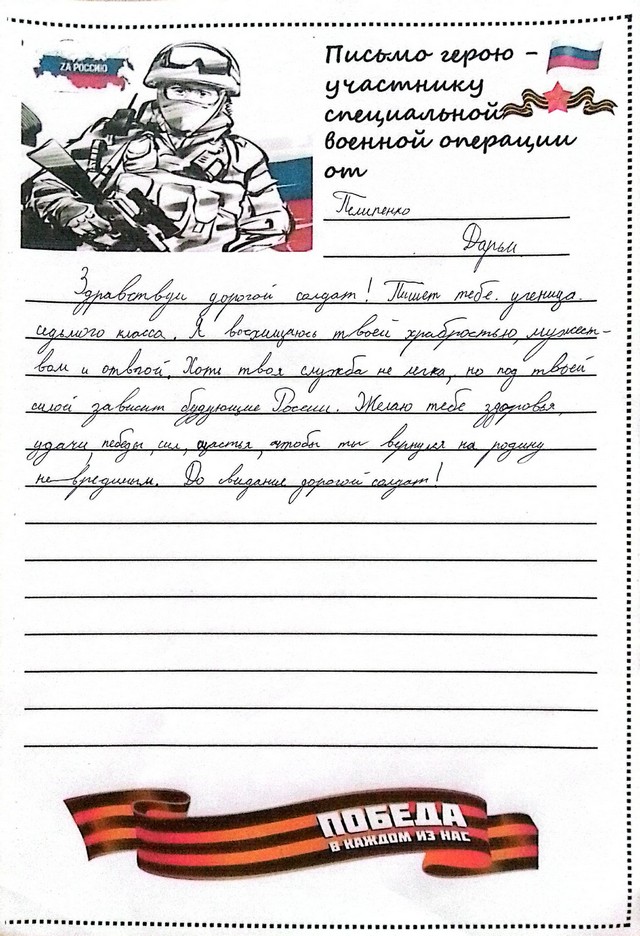 ZA РОССИЮ
Письмо герою –
участнику
специальной
военной операции
от
Пелипенко
Дарьи
Здравствуй дорогой солдат! Пишет тебе ученица
седьмого класса. Я восхищаюсь твоей храбростью, мужест-
вом и отвагой. Хоть твоя служба не легка, но под твоей
силой зависит будующие России. Желаю тебе здоровья,
удачи, победы, сил, счастья, чтобы ты вернулся на родину
не вредимым. До видание дорогой солдат!
ПОБЕДА
В КАЖДОМ ИЗ НАС